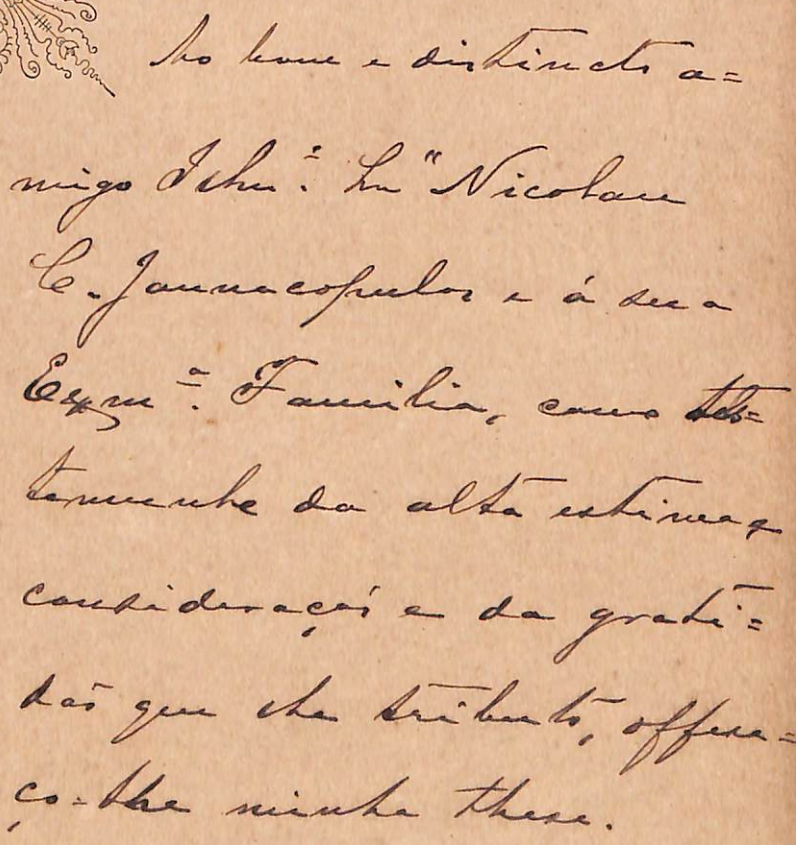 Ao bom e distincto a=
migo Illmº. Snr Nicolau
C. Jannacopulos e á sua
Exmª. Familia, como tes=
temunho da alta estima e
consideração e da grati=
dão que lhe tributo, offere=
ço-lhe minha these.